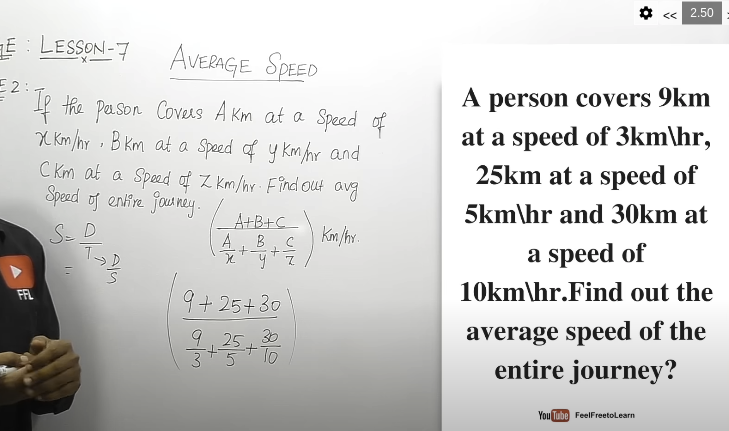 2.50
<<
E : LESSON-7
AVERAGE SPEED
E 2:
If the person Covers A km at a Speed of
x Km/hr, B km at a Speed of y Km/hr and
C Km at a Speed of Z km/hr. Find out avg
Speed of entire journey.
(A+B+C / A/x + B/y + C/z) Km/hr.
S = D/T → D/S
=
(9+25+30 / 9/3 + 25/5 + 30/10)
FFL
A person covers 9km
at a speed of 3km\hr,
25km at a speed of
5km\hr and 30km at
a speed of
10km\hr.Find out the
average speed of the
entire journey?
YouTube FeelFreetoLearn